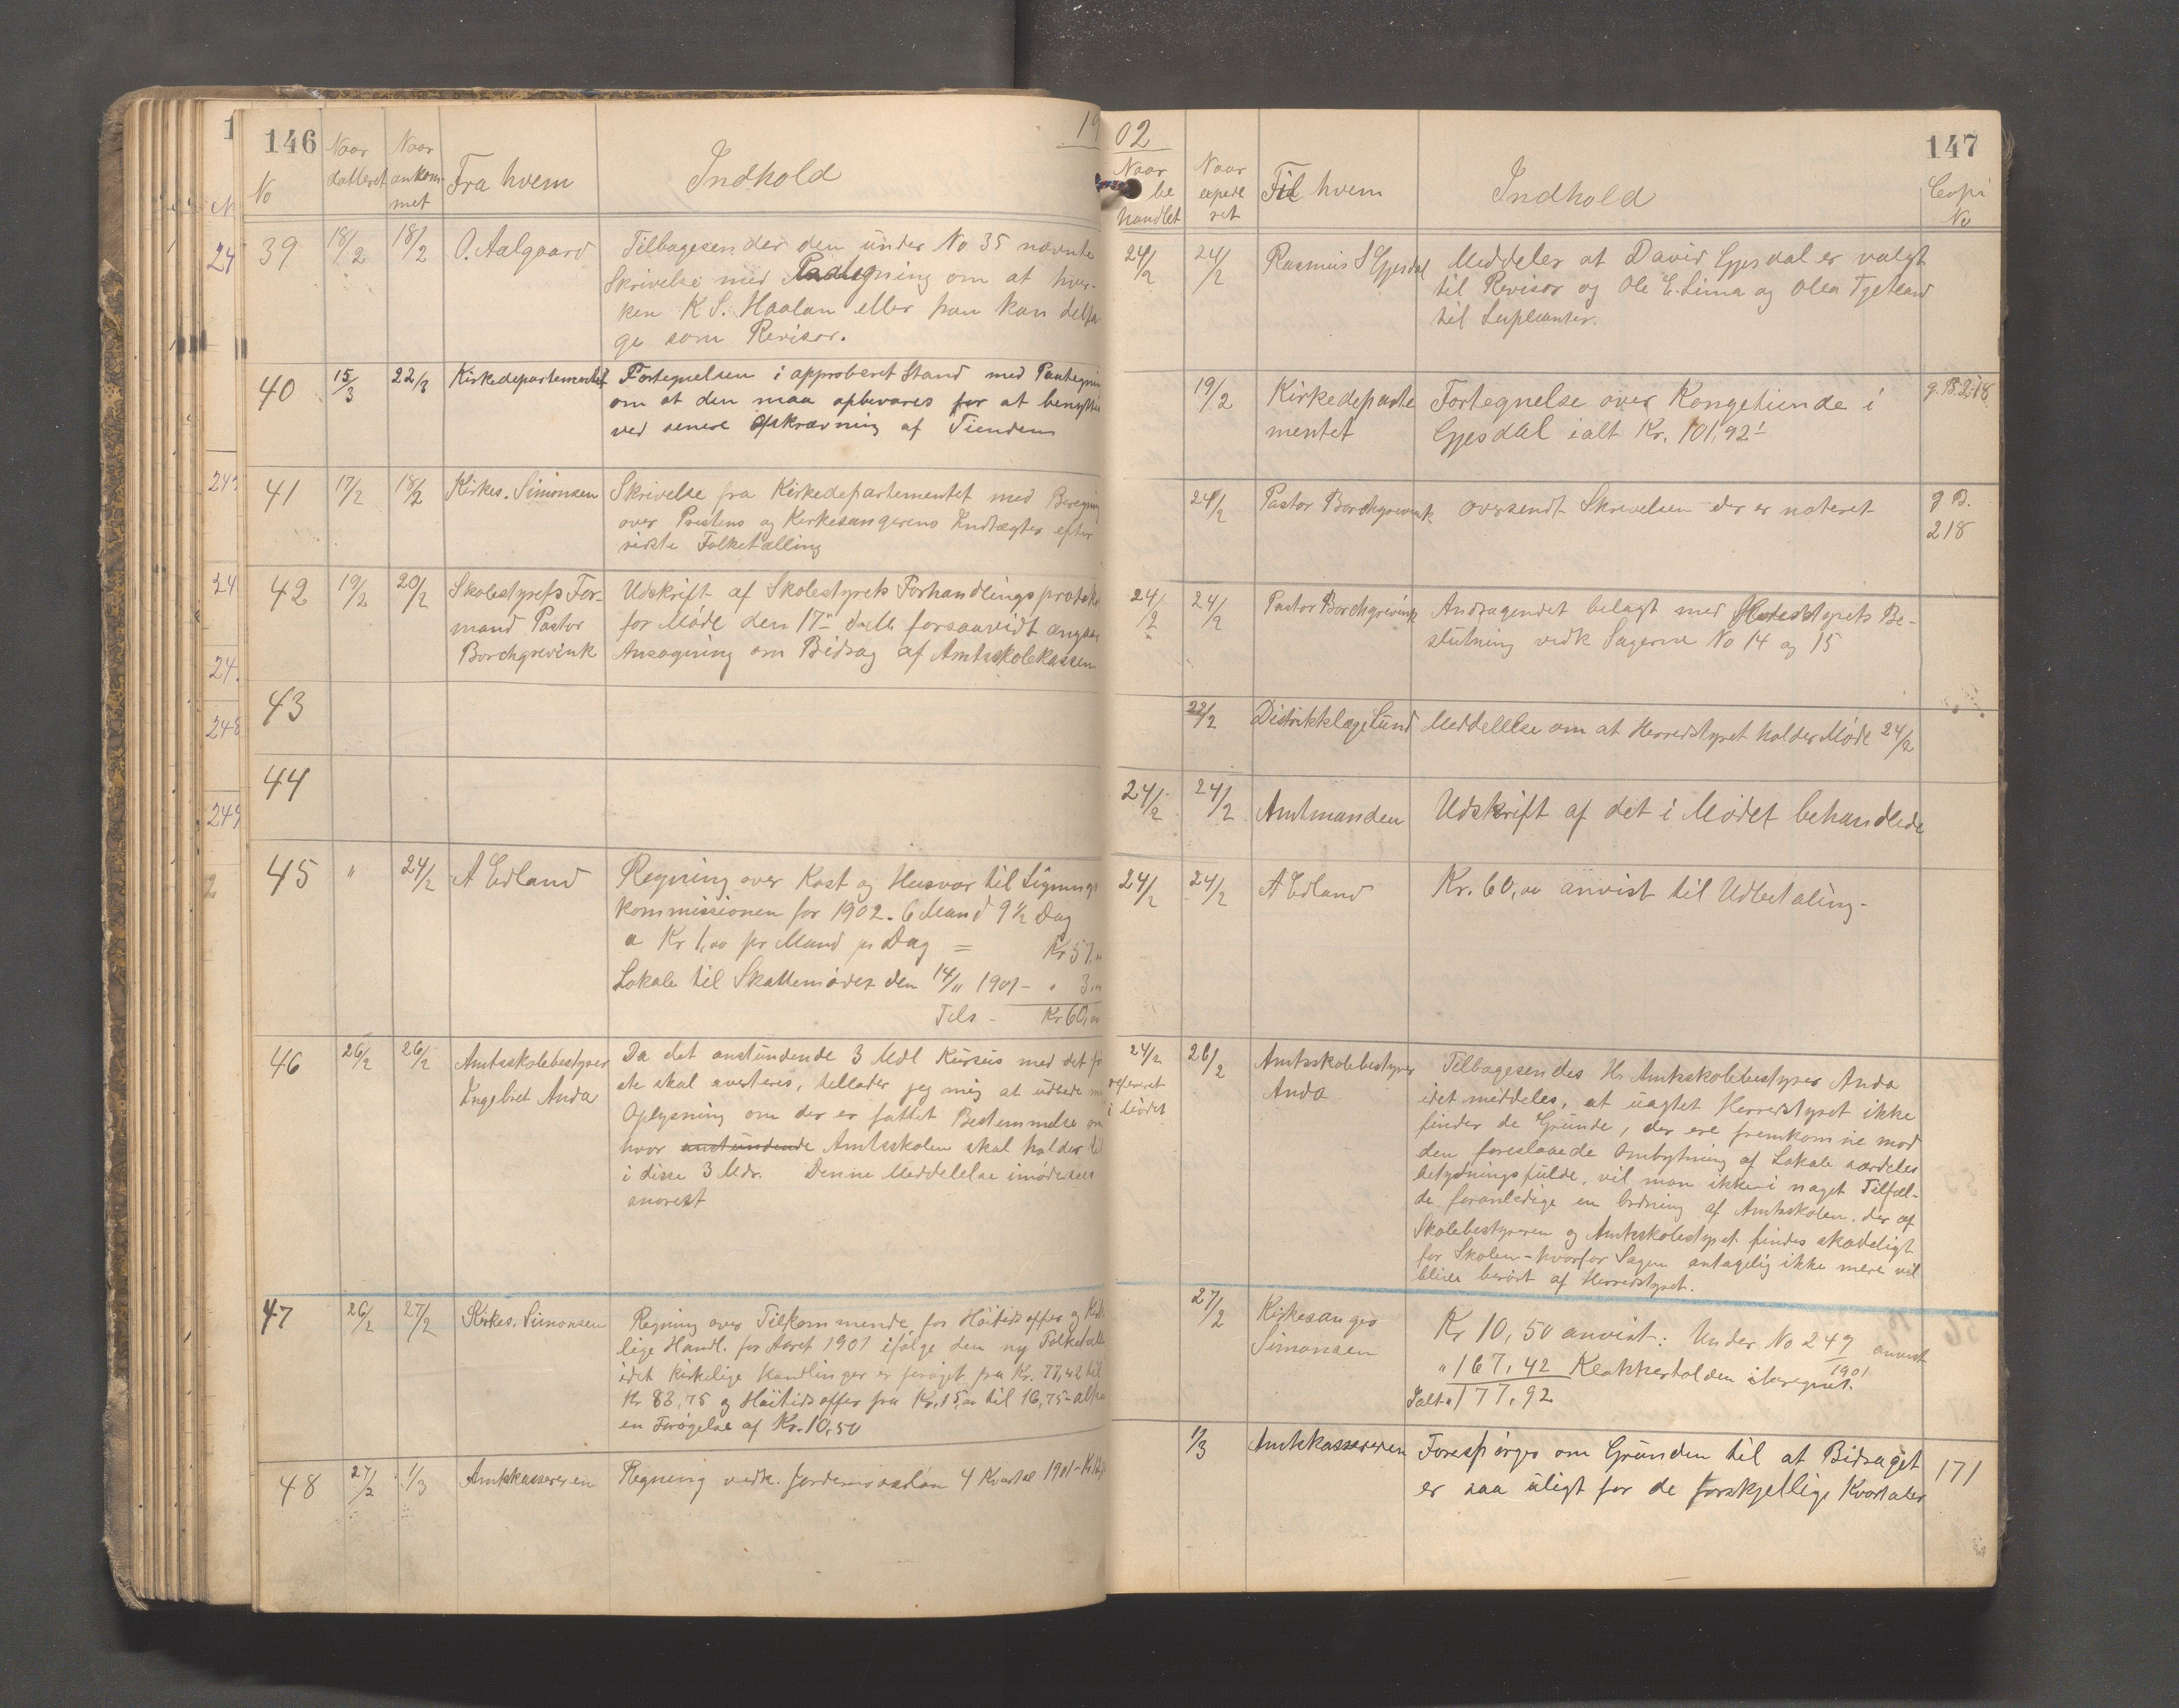 146
19
No
Naar datteret
Naar ankommet
Fra hvem
Indhold
39
18/2
18/2
O. Aalgaard
Tilbagesender den under No 35 nævnte
Skrivelse med Paategning om at hver-
ken K S. Haalan eller han kan delta-
ge som Revisor.
40
15/3
22/3
Kirkedepartementet
Fortegnelsen i approberet Stand med Paategnin
om at den maa opbevares for at benyttes
ved senere Opkrævning af Tienden
41
17/2
18/2
Kirkes. Simonsen
Skrivelse fra Kirkedepartementet med Beregning
over Prestens og Kirkesangerens Indtægter efter
sidste Folketælling
42
19/2
20/2
Skolestyrets For-
mand Pastor
Borchgrevink
Udskrift af Skolestyrets Forhandlingsprotokol
for Møde den 17de d.M. forsaavidt angaar
Ansøgning om Bidrag af Amtsskolekassen
43
44
45
"
24/2
A Edland
Regning over Kost og Husvær til Lignings
kommissionen for 1902. 6 Mand 9 1/2 Dag
a Kr 1,00 pr Mand pr Dag = Kr 57,00
Lokale til Skattemødet den 14/11 1901 - " 3,00
Tils - Kr 60,00
46
26/2
26/2
Amtsskolebestyrer
Ingebret Anda
Da det anstundende 3 Mdl Kursus med det før-
ste skal averteres, tillader jeg mig at udbede mi
Oplysning om der er fattet Bestemmelse om
hvor anstundende Amtsskolen skal holdes til
i disse 3 Mdr. Denne Meddelelse imødesees
snarest
47
26/2
27/2
Kirkes. Simonsen
Regning over Tilkommende for Høitidsoffer og Kirke
lige Handl. for Aaret 1901 ifølge den ny Folketælli
idet kirkelige Handlinger er forøget fra Kr. 77,42 til
Kr 83,75 og Høitidsoffer fra Kr. 15,00 til 16,75 - altsaa
en Forøgelse af Kr. 10,50
48
27/2
1/3
Amtskassereren
Regning vedk. Jordemoderløn 4 Kvartal 1901 - Kr
02
147
Naar be handlet
Naar expede ret
Til hvem
Indhold
Copi No
24/2
24/2
Rasmus S Gjesdal
Meddeler at David Gjesdal er valgt
til Revisor og Ole E. Lima og Olea Tjetland
til Supleanter.
19/2
Kirkedeparte
mentet
Fortegnelse over Kongetiende i
Gjesdal ialt Kr. 101,92
g. B. 218
24/2
Pastor Borchgrevink
oversendt Skrivelsen der er noteret
g B.
218
24/2
24/2
Pastor Borchgrevink
Andragendet belagt med Herredstyrets Be-
slutning vedk Sagerne No 14 og 15
22/2
Distriktslæge Lund
Meddelelse om at Herredstyret holder Møde 24/2
24/2
24/2
Amtmanden
Udskrift af det i Mødet behandlede
24/2
24/2
A Edland
Kr. 60,00 anvist til Udbetaling -
24/2
refereret
i Mødet
26/2
Amtsskolebestyrer
Anda
Tilbagesendes Hr Amtsskolebestyrer Anda
idet meddeles, at uagtet Herredstyret ikke
finder de Grunde, der ere fremkomne mod
den foreslaaede Ombytning af Lokale særdeles
betydningsfulde, vil man ikke i noget Tilfæl-
de foranledige en Ordning af Amtsskolen, der af
Skolebestyreren og Amtsskolestyret findes skadeligt
for Skolen - hvorfor Sagen antagelig ikke mere vil
blive berørt af Herredstyret.
27/2
Kirkesanger
Simonsen
Kr 10,50 anvist: Under No 249/1901 anvist
" 167,42 Klokkertolden iberegnet.
Ialt " 177,92
1/3
Amtskassereren
Forespørges om Grunden til at Bidraget
er saa uligt for de forskjellige Kvartaler
171